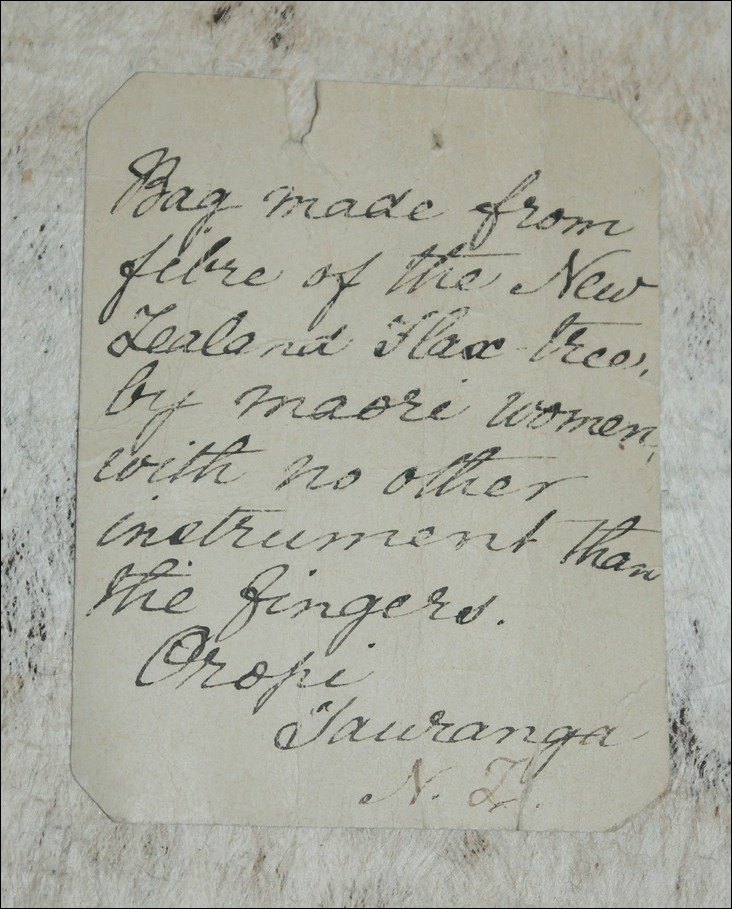 Bag made from
fibre of the New
Zealand Flax tree,
by maori women,
with no other
instrument than
the fingers.
Oropi
Tauranga
N. Z.